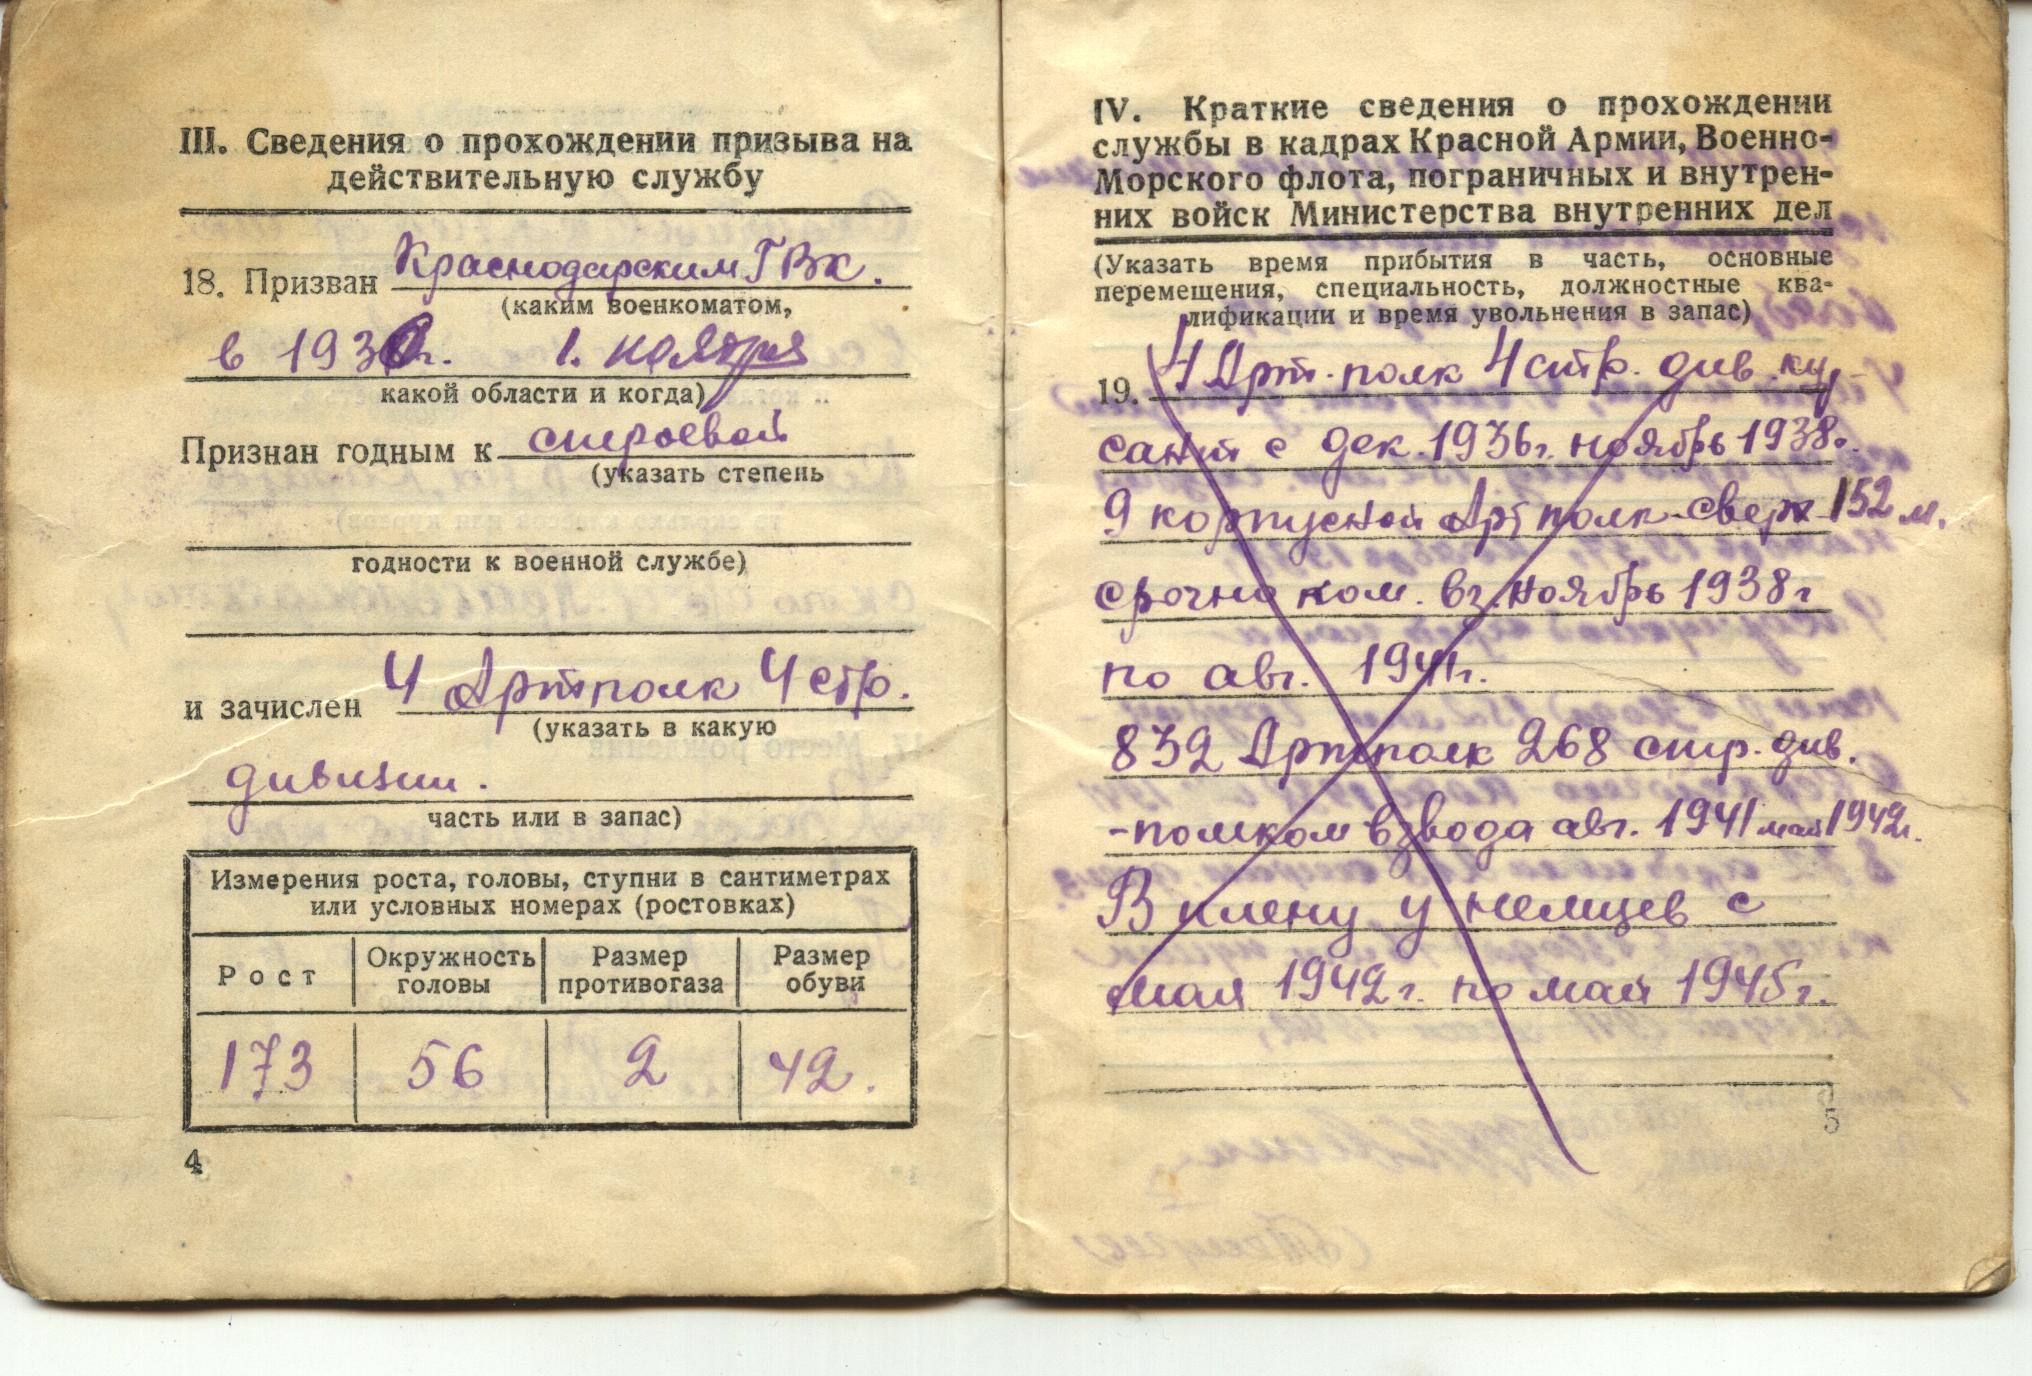 III. Сведения о прохождении призыва на
действительную службу
18. Призван Краснодарским ГВК.
(каким военкоматом,
в 1936г. 1. ноября
какой области и когда)
Признан годным к строевой
(указать степень
годности к военной службе)
и зачислен 4 Артполк 4 стр.
(указать в какую
дивизии.
часть или в запас)
Измерения роста, головы, ступни в сантиметрах
или условных номерах (ростовках)
Рост Окружность головы Размер противогаза Размер обуви
173 56 2 42.
4
IV. Краткие сведения о прохождении
службы в кадрах Красной Армии, Военно-
Морского флота, пограничных и внутрен-
них войск Министерства внутренних дел
(Указать время прибытия в часть, основные
перемещения, специальность, должностные ква-
лификации и время увольнения в запас)
19. 4 Арт. полк 4 стр. див. кур-
сант с дек. 1936г. ноябрь 1938г.
9 корпусной Арт полк-сверх 152 м.
срочно ком. вз. ноябрь 1938г
по авг. 1941г.
832 Артполк 268 стр. див.
-помком взвода авг. 1941 май 1942г.
В плену у немцев с
мая 1942г. по май 1945г.
5